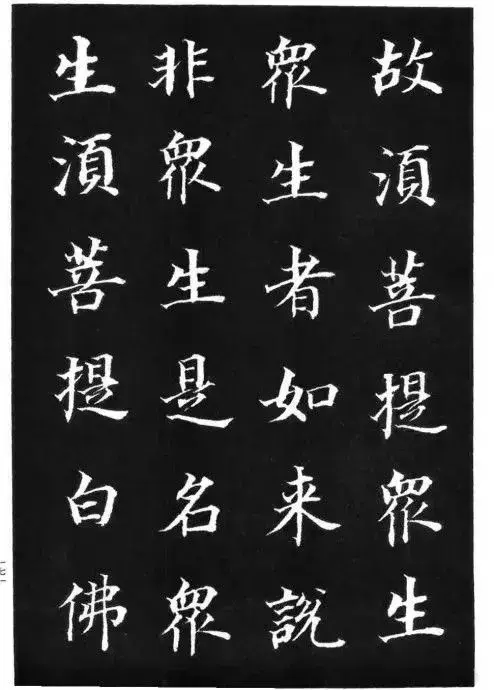 故須菩提眾生
眾生者如来說
非眾生是名眾
生須菩提白佛